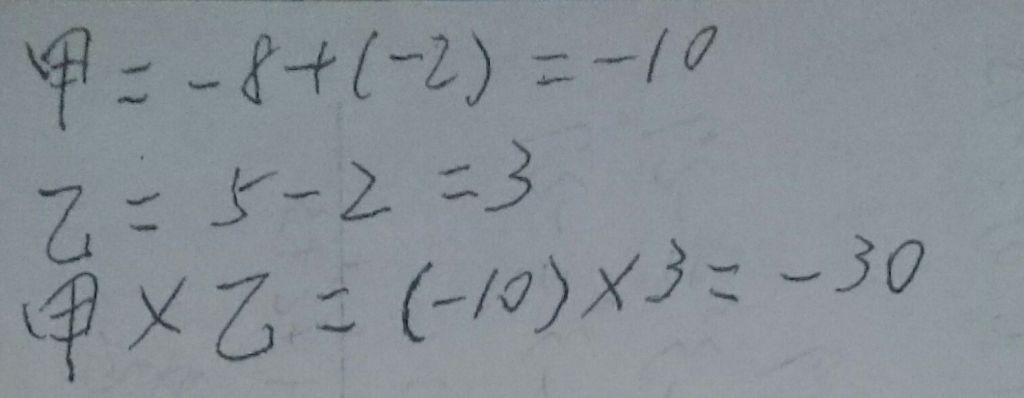 甲=-8+(-2)=-10
乙=5-2=3
甲×乙=(-10)×3=-30